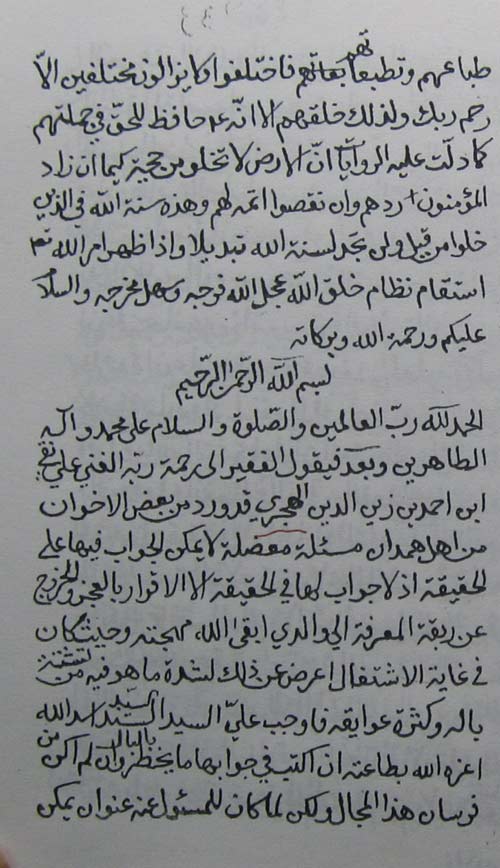 طباعهم وتطبعاتهم فاختلفوا ولا يزالون مختلفين الّا
رحم ربك ولذلك خلقهم الا انّه ع حافظ للحقّ في جملتهم
كما دلّت عليه الروايات انّ الارض لا تخلو من حجة كيما ان زاد
المؤمنون ردهم وان نقصوا اتمه لهم وهذه سنة الله في الذين
خلوا من قبل ولن تجد لسنة الله تبديلا واذا ظهر امر الله تع
استقام نظام خلق الله عجل الله فرجه وسهل مخرجه والسلا
عليكم ورحمة الله وبركاته
بسم الله الرّحمن الرّحيم
الحمد لله ربّ العالمين والصّلوة والسلام على محمد وآله
الطاهرين وبعد فيقول الفقير الى رحمة ربّه الغني علي نقي
ابن احمد بن زين الدين الهجري قد ورد من بعض الاخوان
من اهل همدان مسئلة معضلة لا يمكن الجواب فيها على
الحقيقة اذ لا جواب لها في الحقيقة الا الاقرار بالعجز والخروج
عن ربقة المعرفة الى والدي ابقى الله مهجته وحيث كان
في غاية الاشتغال اعرض عن ذلك لشدة ما هو فيه من تشتت
باله وكثرة عوايقه فاوجب عليّ السيد السند السيد اسد الله
اعزه الله بطاعته ان اكتب في جوابها ما يخطر بالبال وان لم اكن من
فرسان هذا المجال ولكن لما كان للمسئول عنه عنوان يمكن